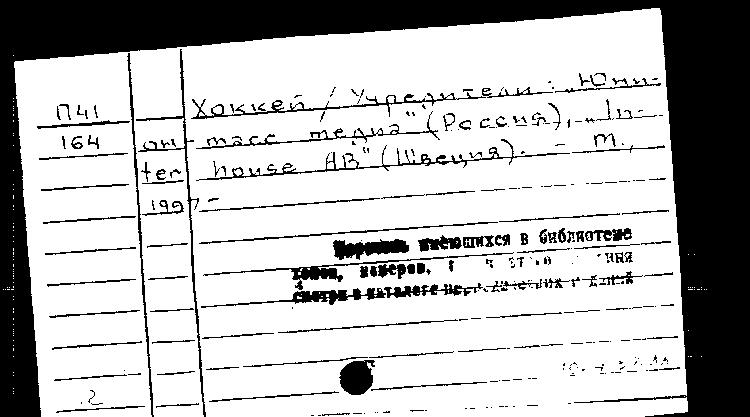 П41 Хоккей / Учредители: „Юни-
164 он масс медиа" (Россия), „In-
ter house AB" (Швеция). - М.,
1997 -
имеющихся в библиотеке
номеров,
смотри в каталоге
2